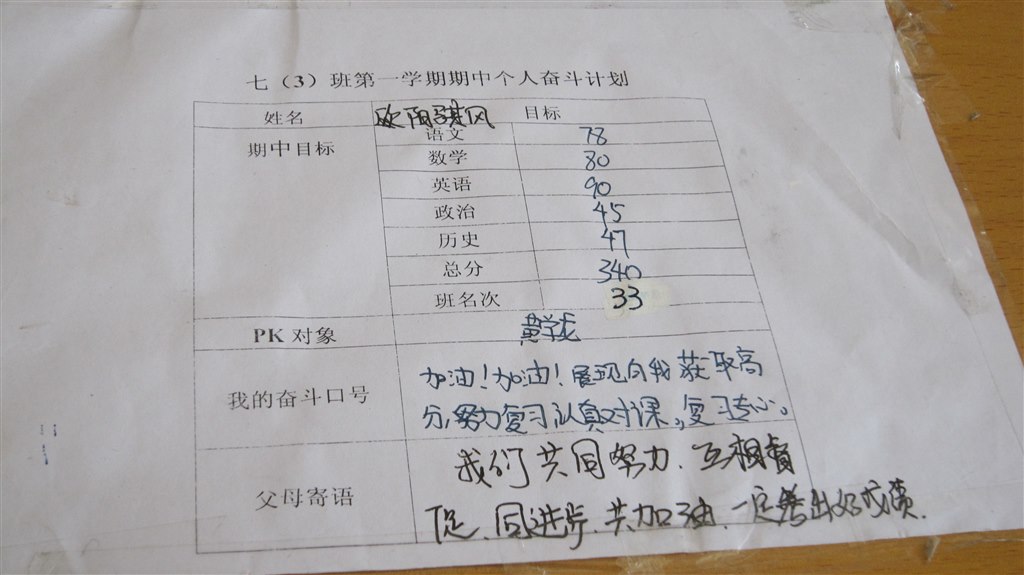 七（3）班第一学期期中个人奋斗计划
姓名 欧阳骏风 目标
期中目标 语文 78
数学 80
英语 90
政治 45
历史 47
总分 340
班名次 33
PK 对象 黄学龙
我的奋斗口号 加油！加油！展现自我获取高
分，努力复习，认真对课，复习专心。
父母寄语 我们共同努力、互相督
促、同进步、共加油、一定考出好成绩.